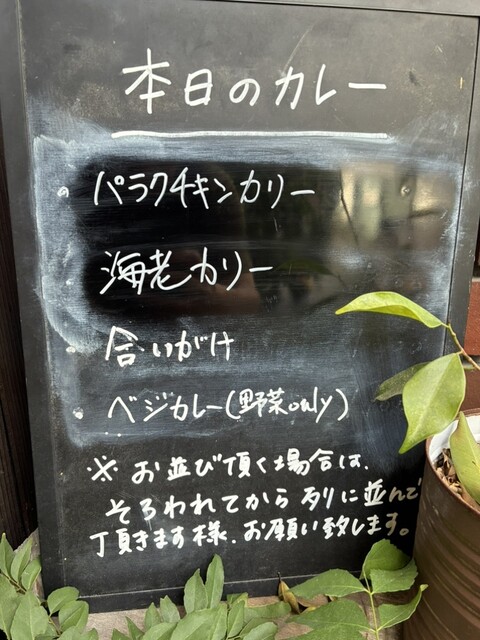 本日のカレー
・パラクチキンカリー
海老カリー
・合いがけ
・ベジカレー(野菜only)
※お並び頂く場合は、
そろわれてから列に並んで
頂きます様、お願い致します。